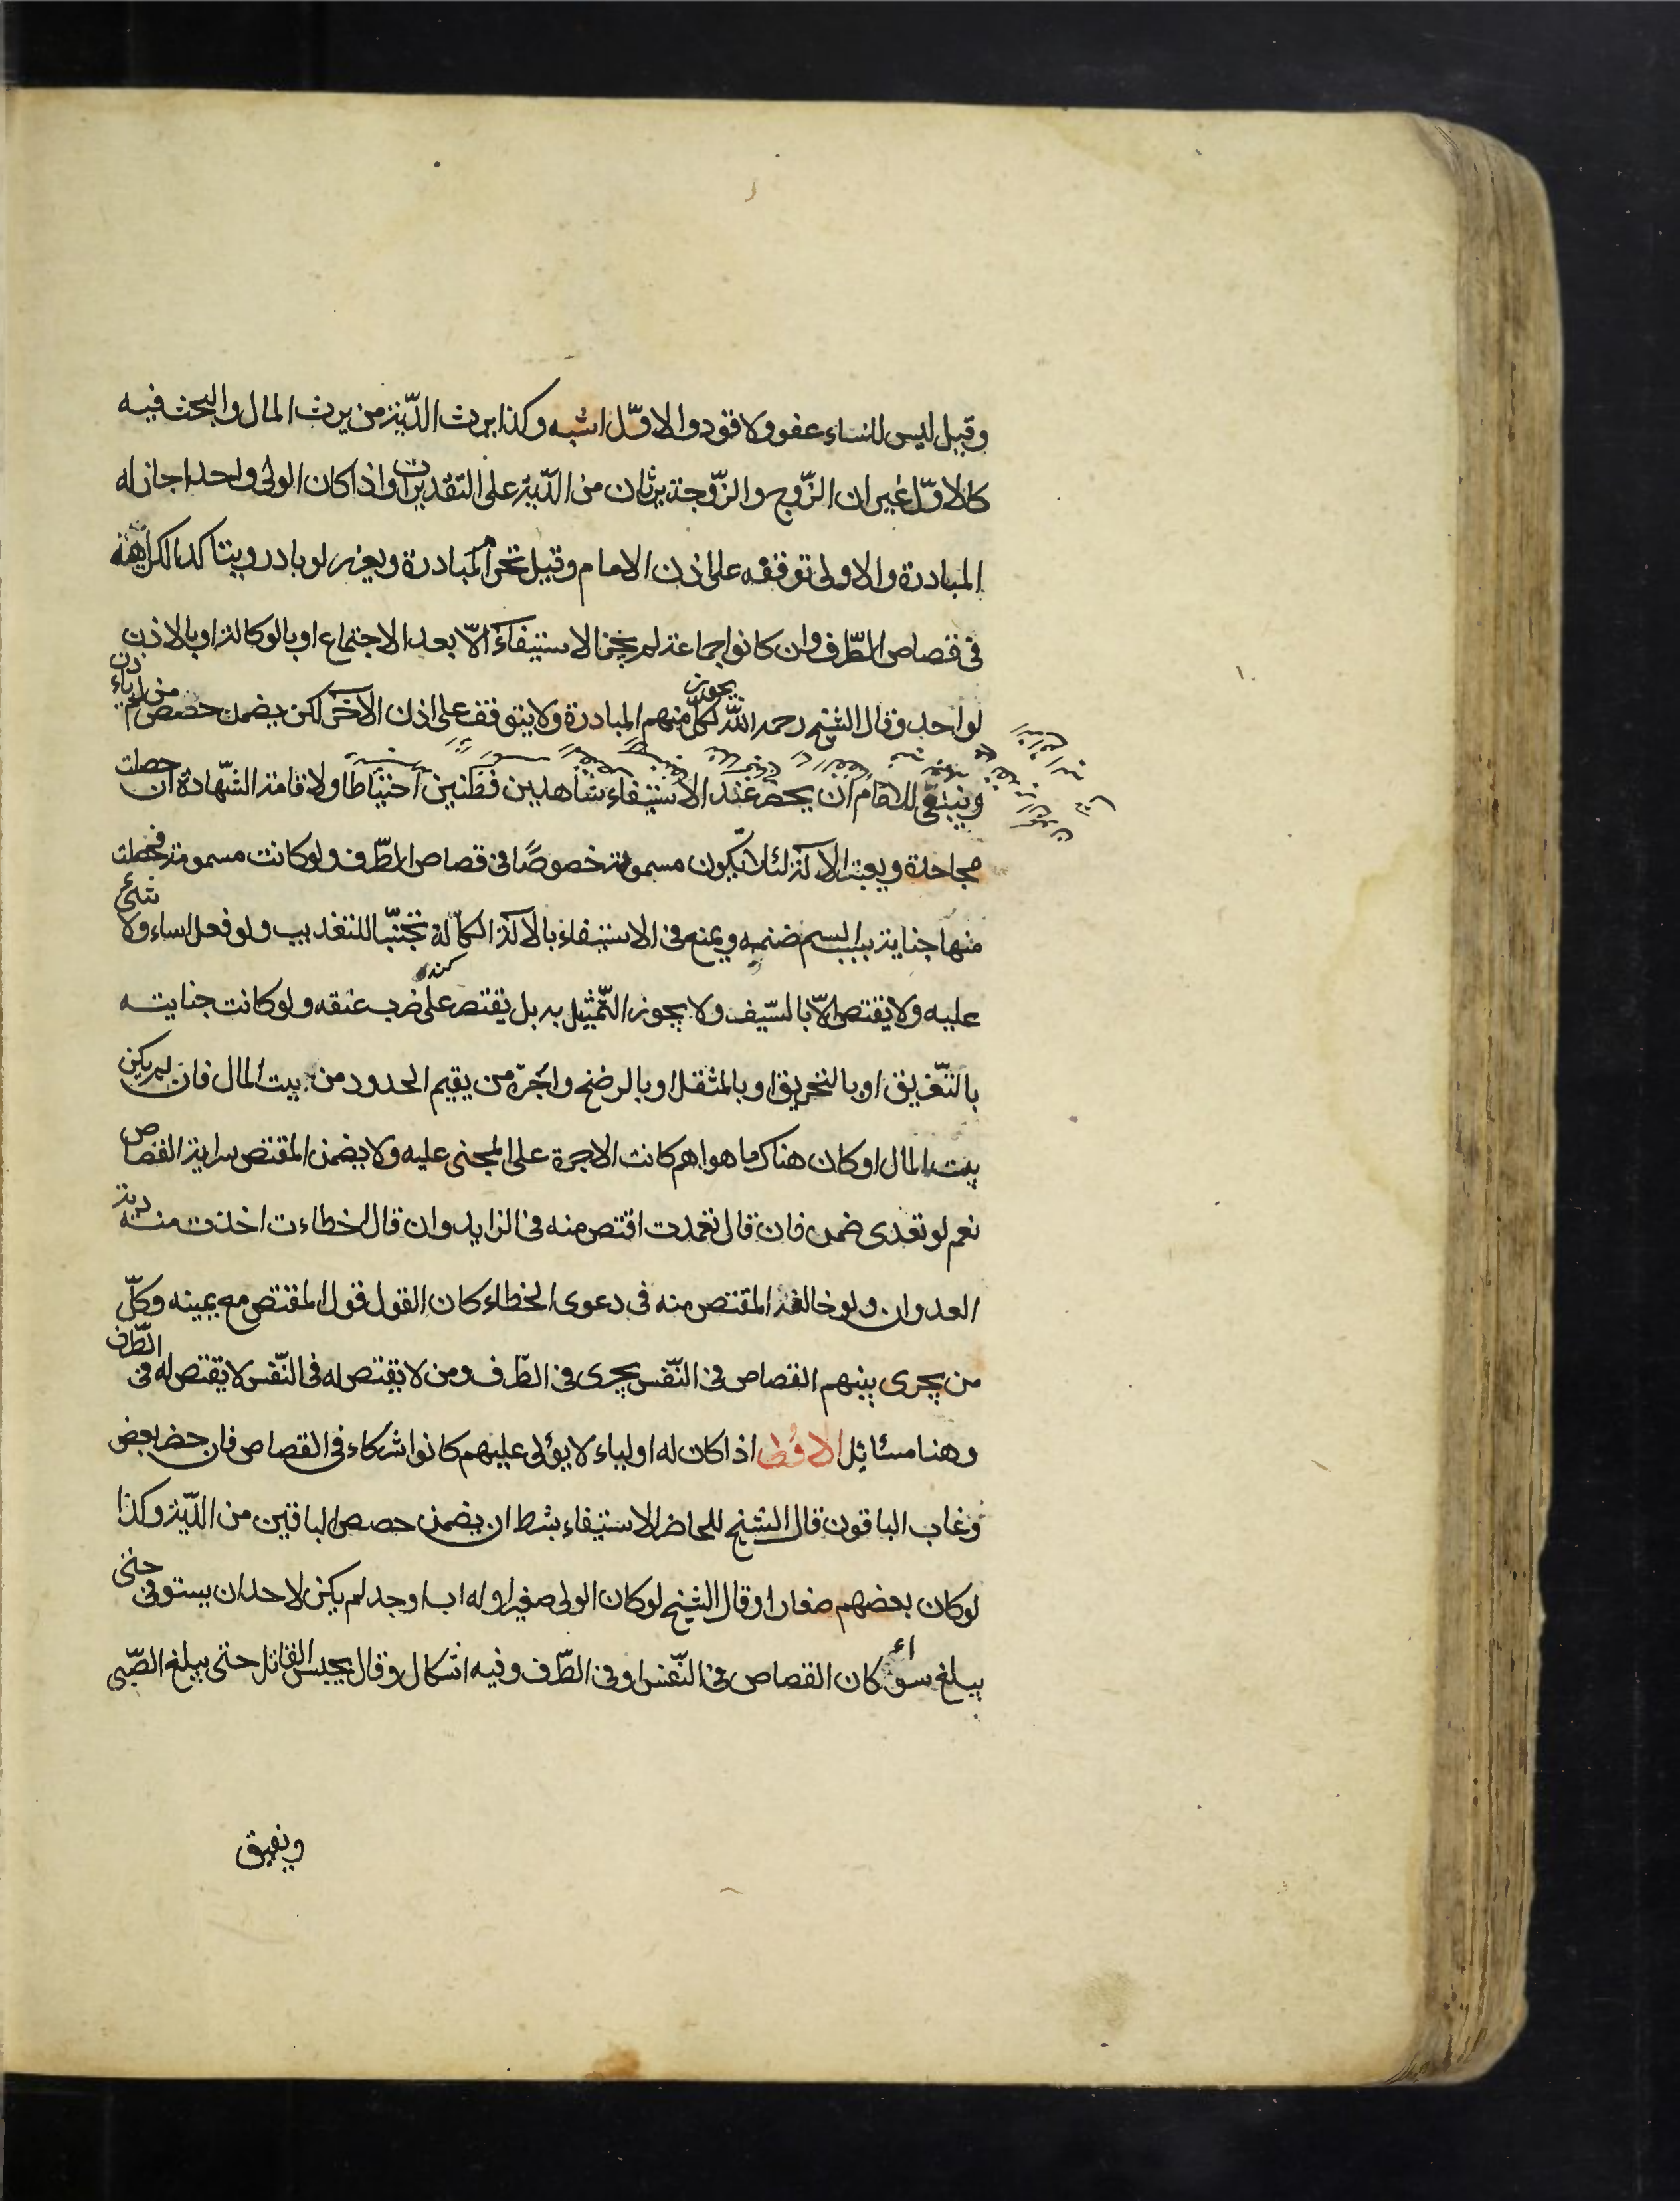 وقيل ليس للنساء عفو ولا قود والاوّل اشبه وكذا يرث الدّية من يرث المال والبحث فيه
كالاوّل غير ان الزّوج والزّوجة يرثان من الدّية على التقديرات واذا كان الولى واحدا جاز له
المبادرة والاولى توقفه على اذن الامام وقيل تحرم المبادرة ويعزر لو بادر ويتاكد الكراهة
فى قصاص الطّرف وان كانوا جماعة لم يجز الاستيفاء الّا بعد الاجتماع او بالوكالة او بالاذن
لواحد وقال الشيخ رحمه اللّه يجوز لكلّ منهم المبادرة ولا يتوقف على اذن الآخر لكن يضمن حصص من لم ياذن
وينبغى للامام ان يحضر عند الاستيفاء شاهدين فطنين احتياطا ولاقامة الشّهادة ان حصلت
مجاحدة ويعتبر الآلة لئلا تكون مسمومة خصوصًا فى قصاص الطّرف ولو كانت مسمومة فحصلت
منها جناية بسبب السم ضمنه ويمنع فى الاستيفاء بالآلة الكالة تجنّبا للتعذيب ولو فعل اساء ولا شئ
عليه ولا يقتص الّا بالسّيف ولا يجوز التّمثيل به بل يقتصر على ضرب عنقه ولو كانت جنايته
بالتّغريق او بالتحريق او بالمثقل او بالرضخ واجرة من يقيم الحدود من بيت المال فان لم يكن
بيت المال او كان هناك ما هو اهم كانت الاجرة على المجنى عليه ولا يضمن المقتص سراية القصاص
نعم لو تعدى ضمن فان قال تعمدت اقتص منه فى الزايد وان قال اخطاءت اخذت منه دية
العدوان ولو خالفه المقتص منه فى دعوى الخطاء كان القول قول المقتص مع يمينه وكلّ
من يجرى بينهم القصاص فى النّفس يجرى فى الطّرف ومن لا يقتص له فى النّفس لا يقتص له فى الطّرف
وهنا مسائل الاولى اذا كان له اولياء لا يولى عليهم كانوا شركاء فى القصاص فان حضر بعض
وغاب الباقون قال الشيخ للحاضر الاستيفاء بشرط ان يضمن حصص الباقين من الدّية وكذا
لو كان بعضهم صغارا وقال الشيخ لو كان الولى صغيرا وله اب او جد لم يكن لاحد ان يستوفى حتى
يبلغ سواء كان القصاص فى النّفس او فى الطّرف وفيه اشكال وقال يحبس القاتل حتى يبلغ الصّبى
ويفيق